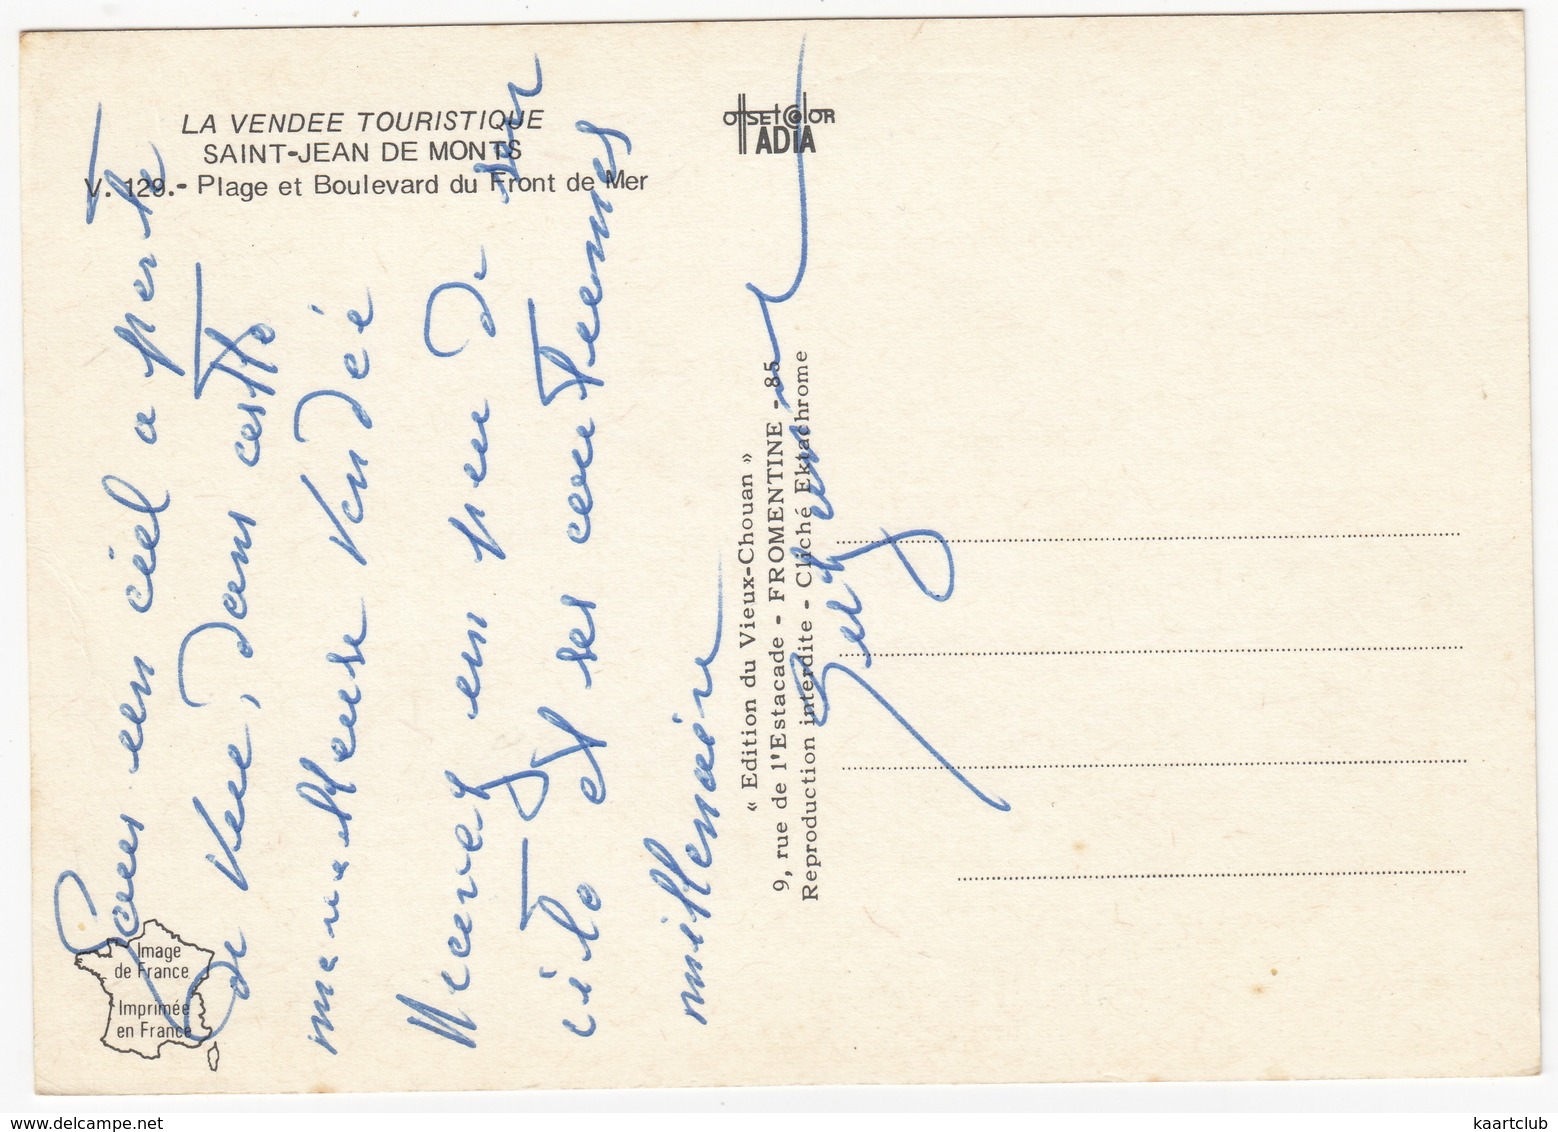 LA VENDEE TOURISTIQUE
SAINT-JEAN DE MONTS
V. 129.- Plage et Boulevard du Front de Mer
OffSEtColOR
ADIA
Sous un ciel a perte
de vue, dans cette
merveilleuse Vendée
recevez un peu de son
et ses coutumes
millenaire
« Edition du Vieux-Chouan »
9, rue de l'Estacade - FROMENTINE - 85
Reproduction interdite - Cliché Ektachrome
Image
de France
Imprimée
en France
kaartclub